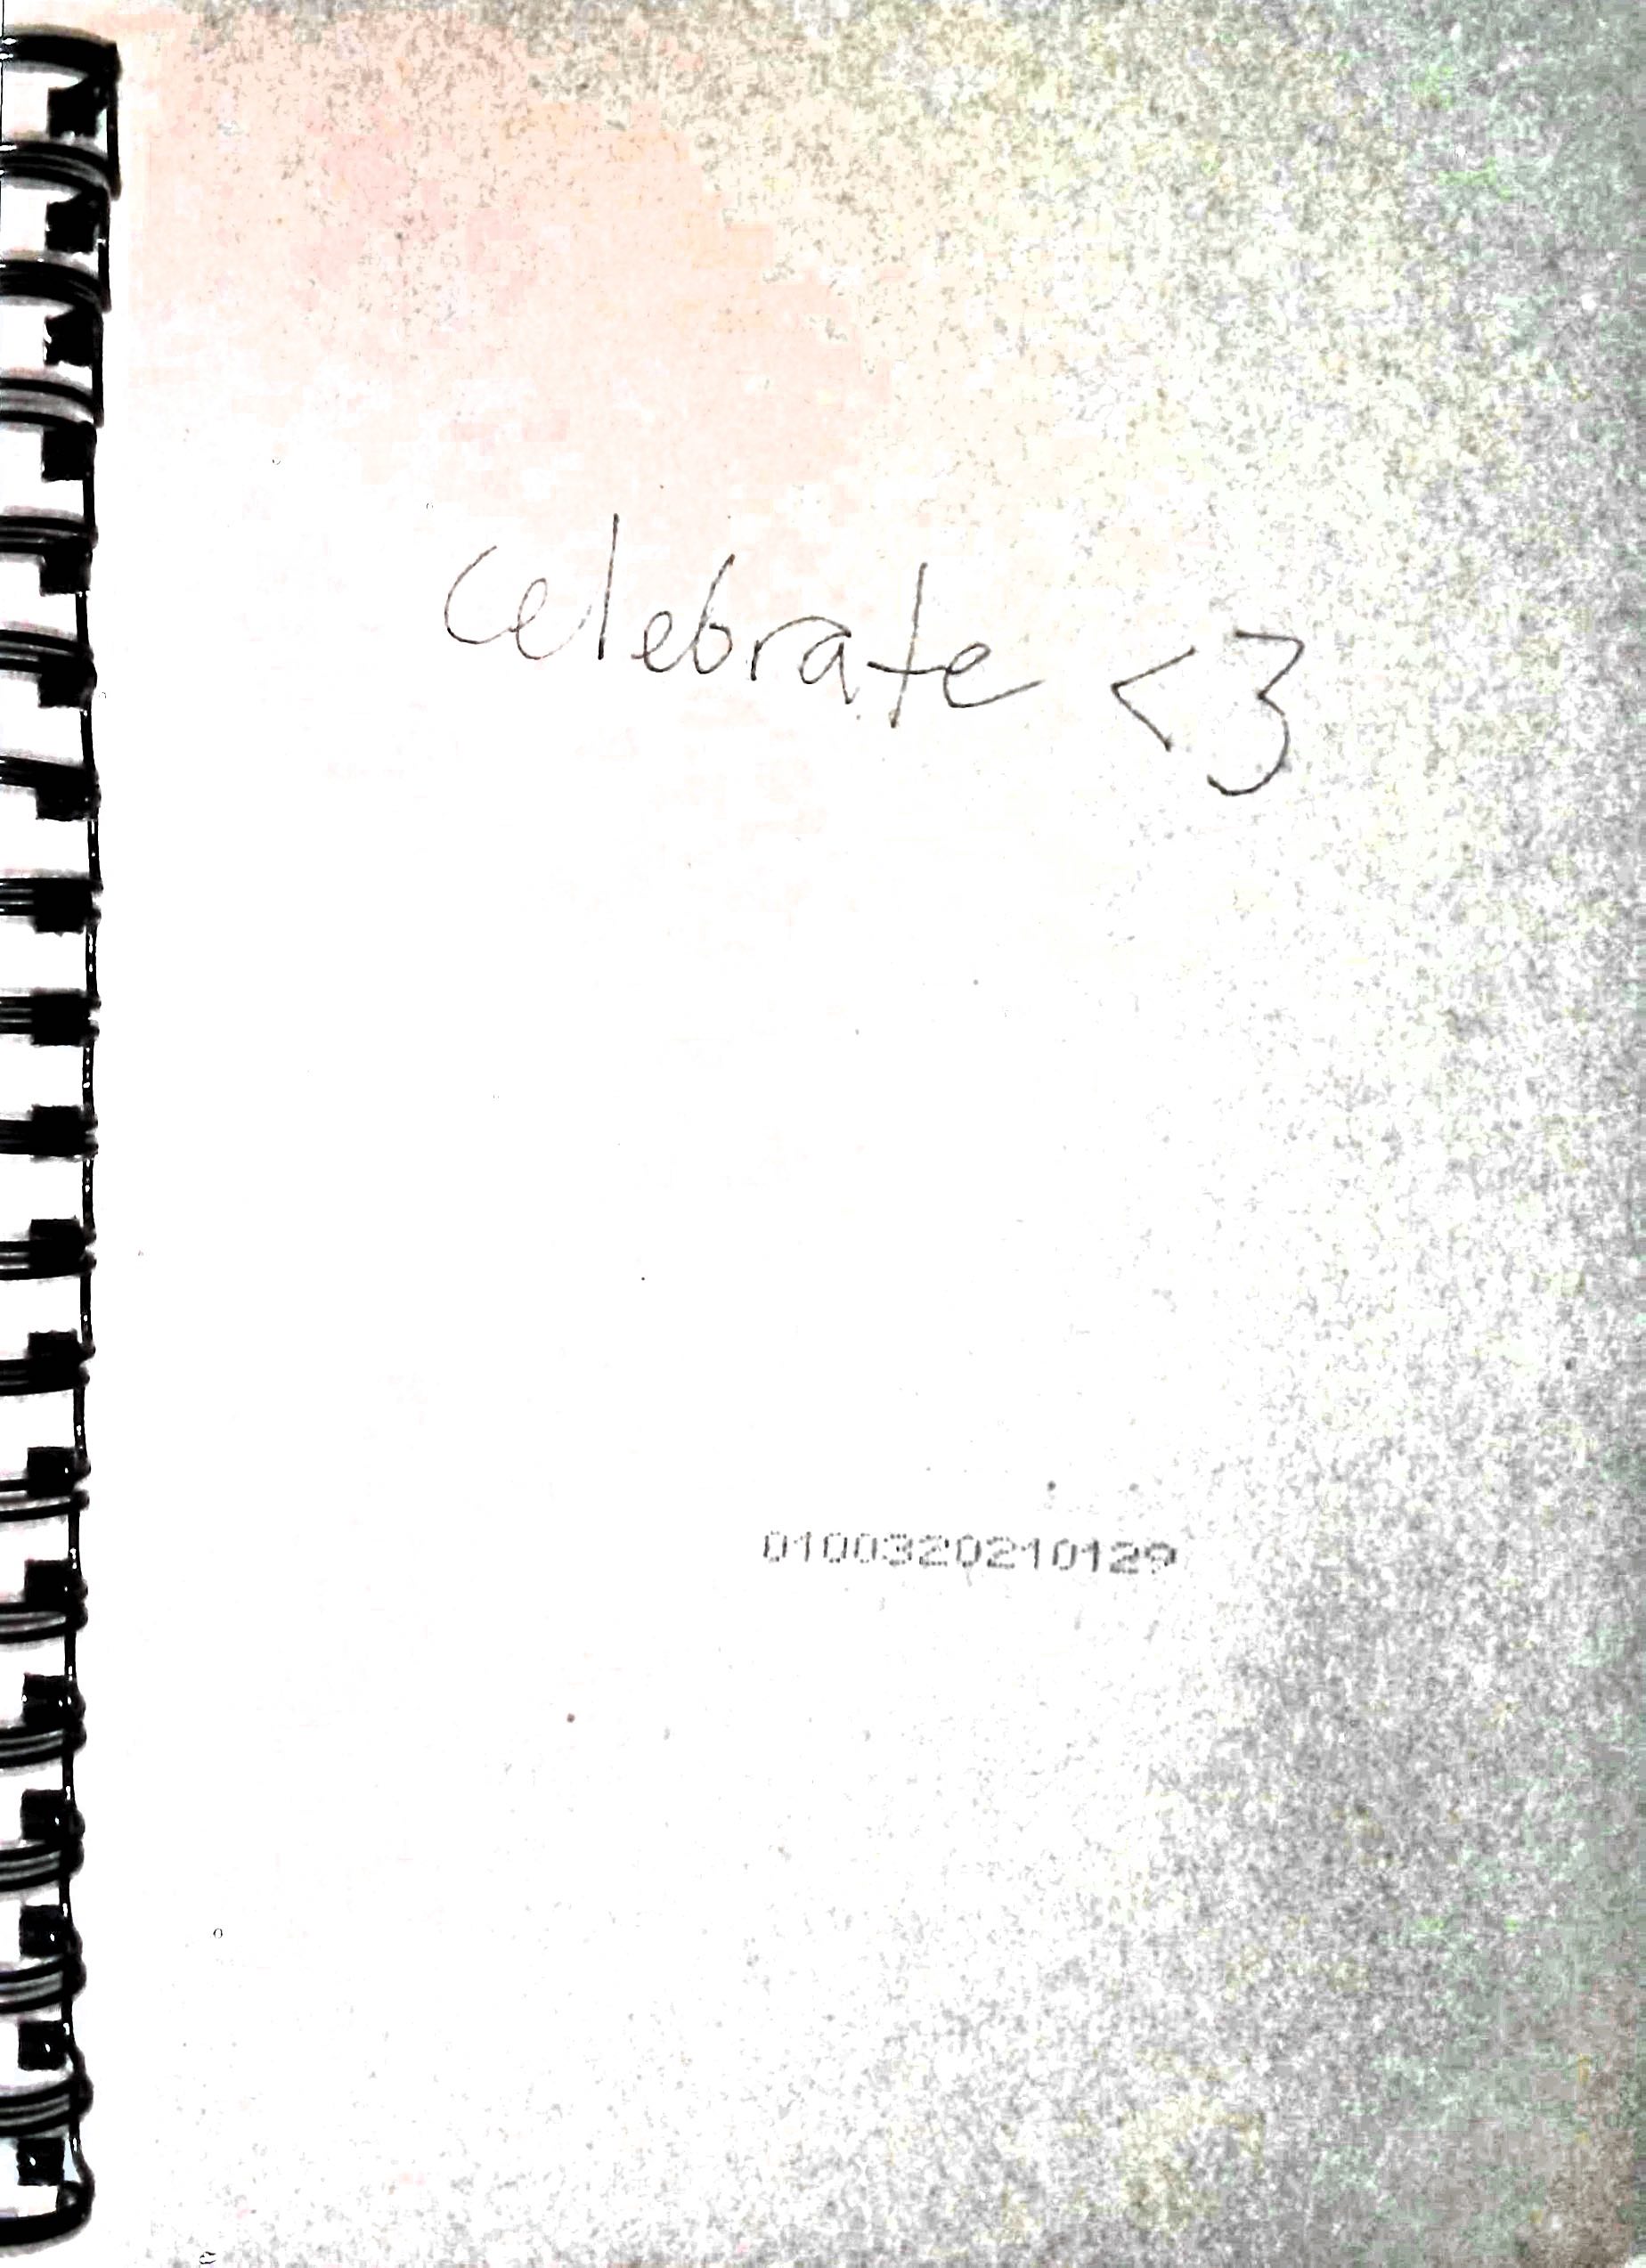 celebrate <3
0100320210129